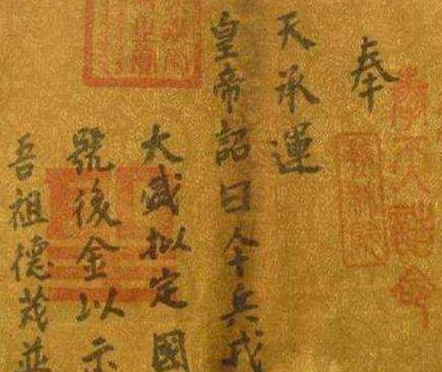 奉
天承運
皇帝詔曰今兵戎
大盛拟定國
號後金以示
吾祖德茂並